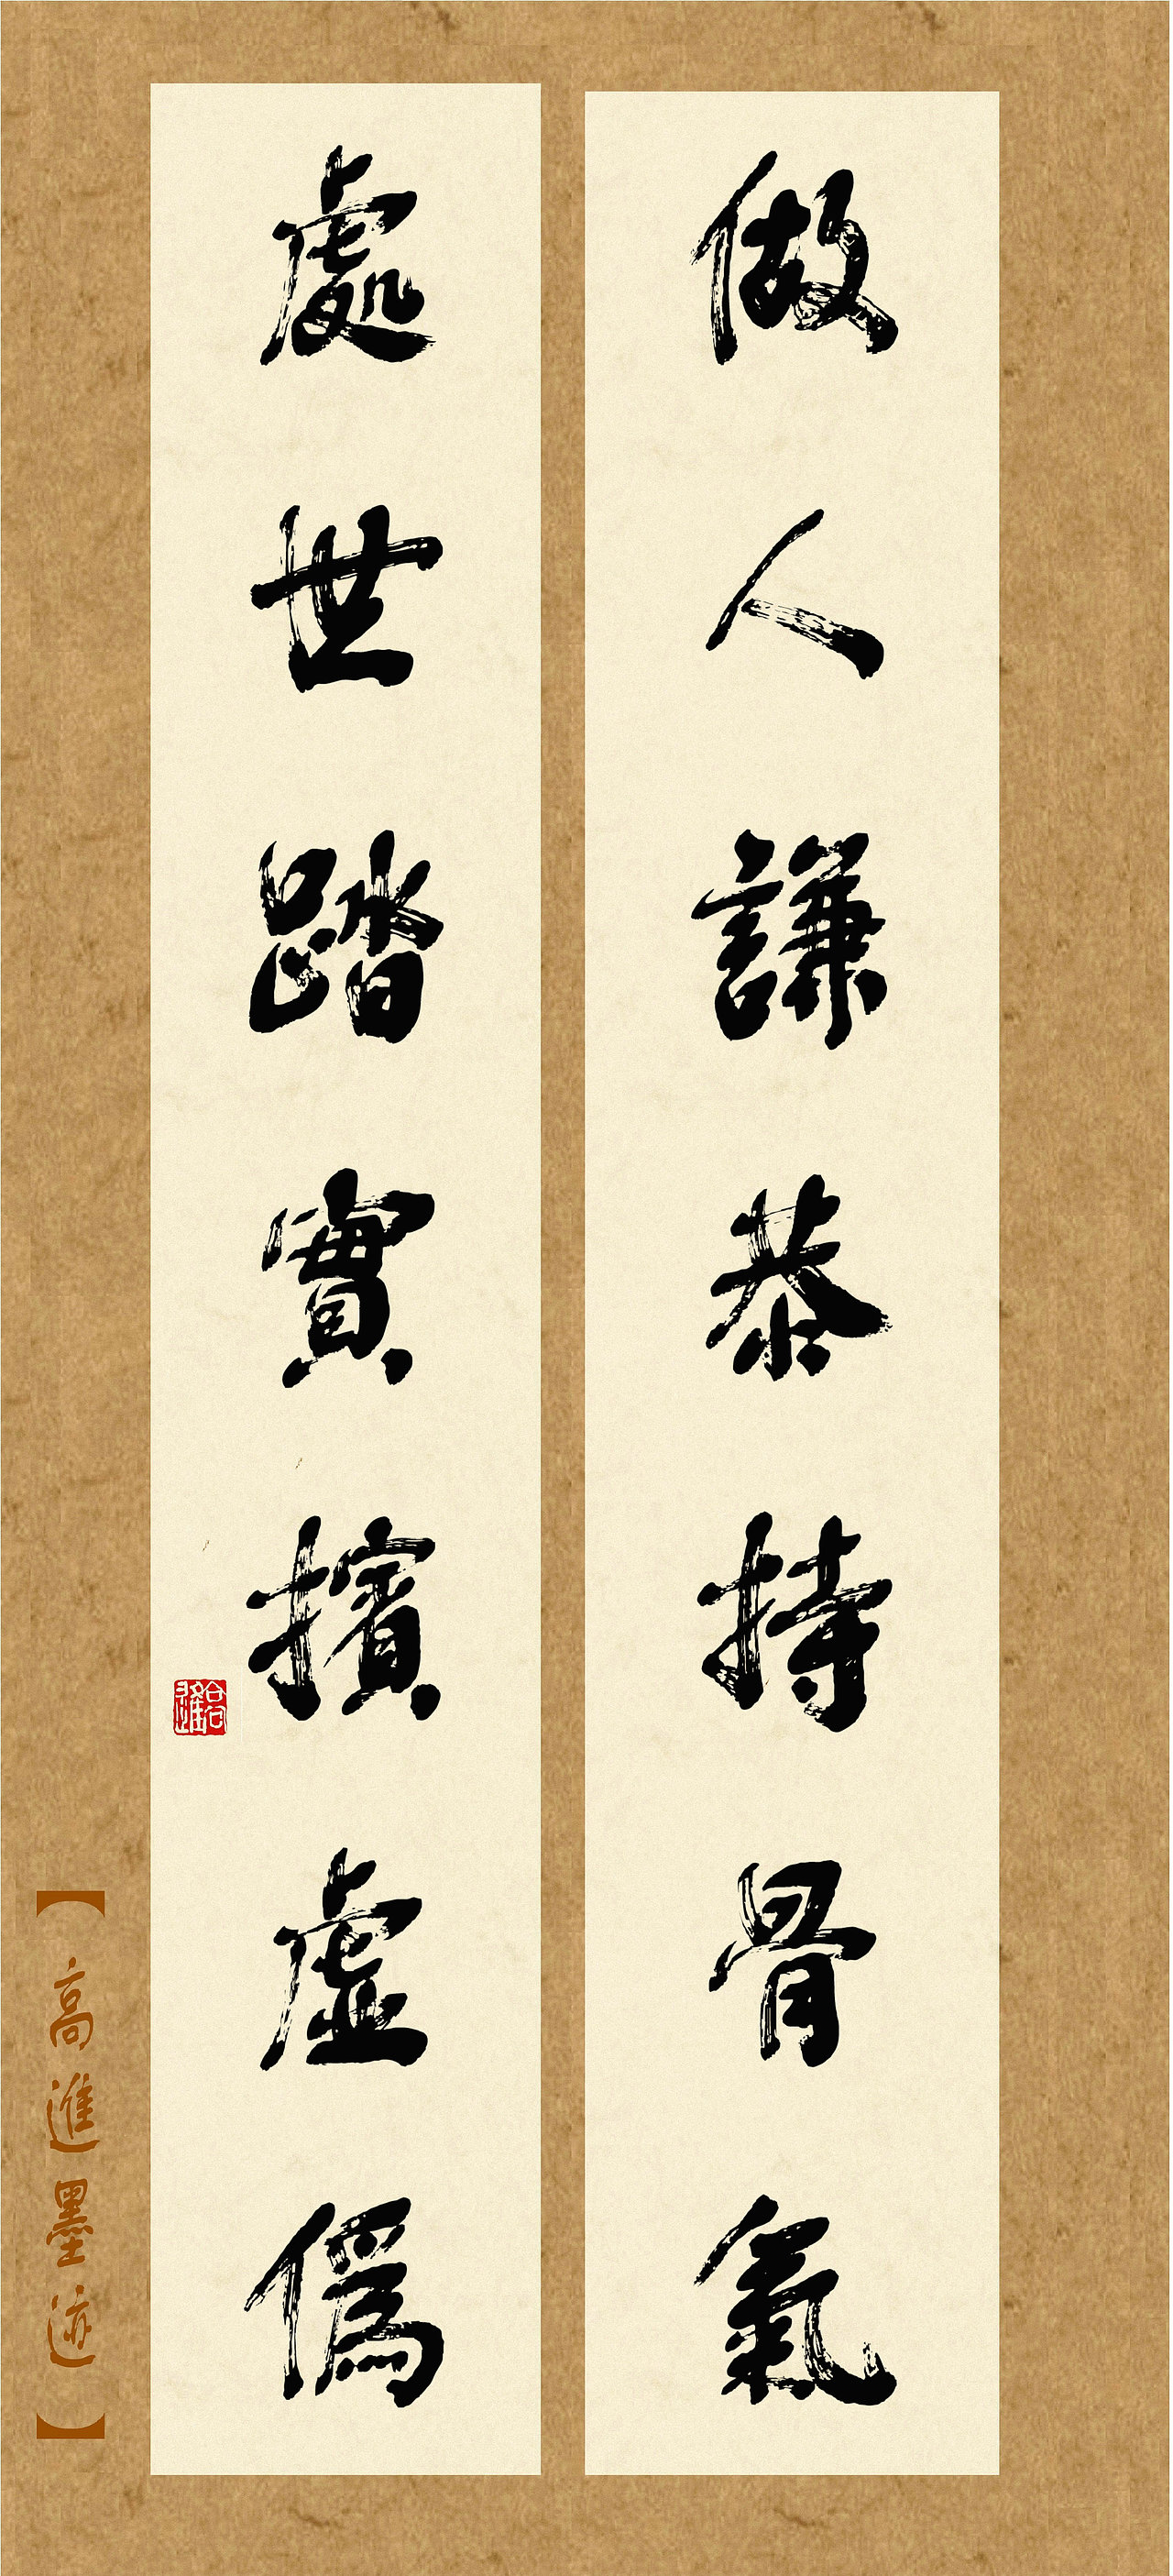 做人謙恭持骨氣
處世踏實擯虛僞
【高進墨迹】